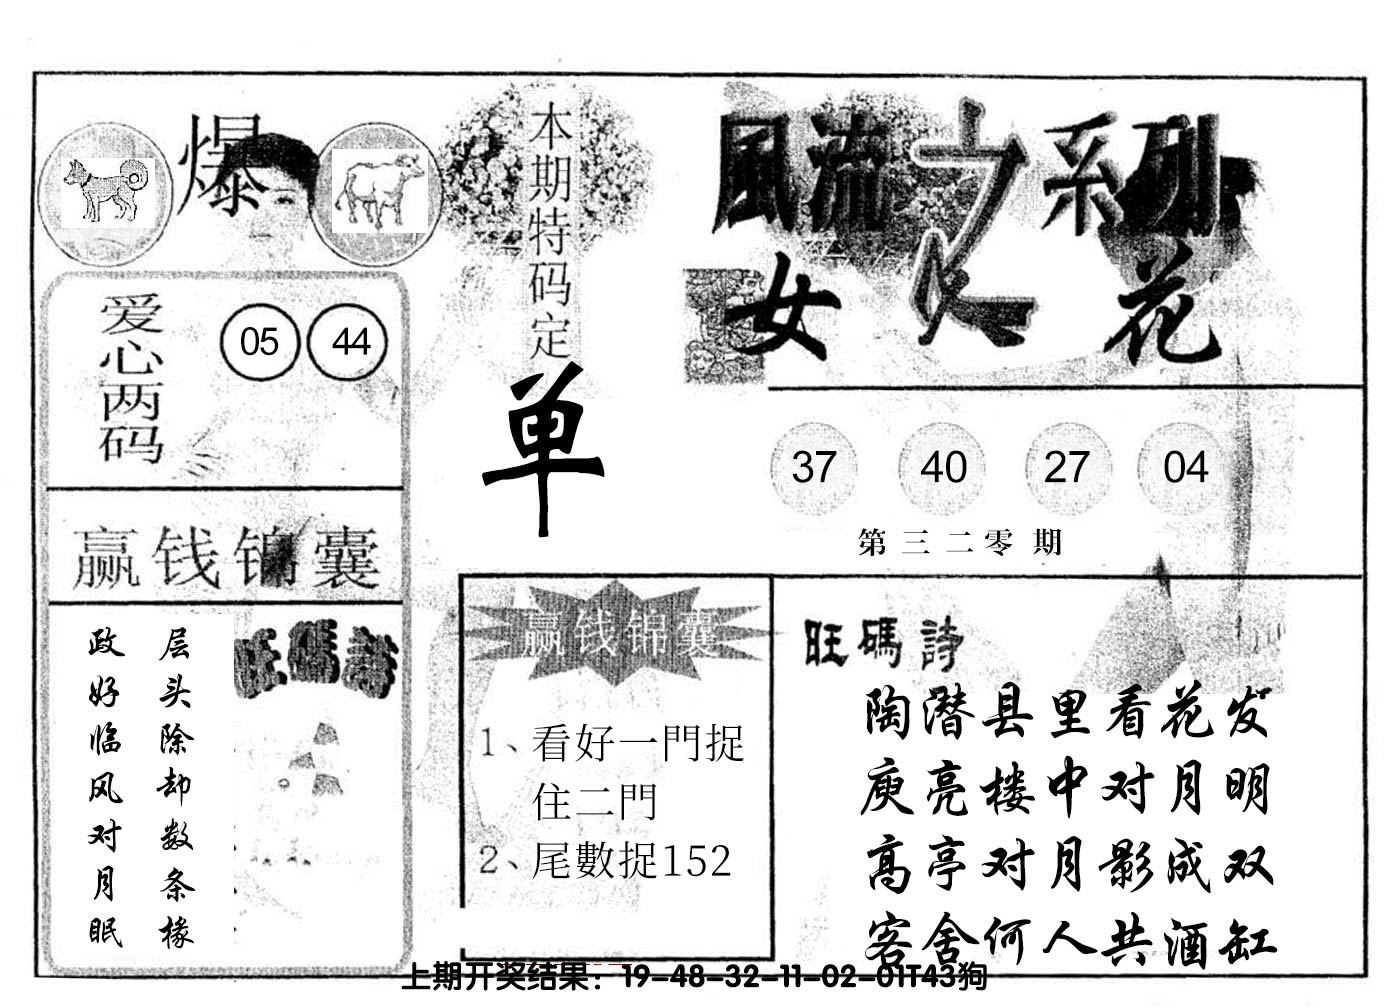 爆
本期特码定
单
風流之系列
女人花
爱心两码
05 44
37 40 27 04
第三二零期
赢钱锦囊
层头除却数条椽
政好临风对月眠
旺碼詩
赢钱锦囊
1、看好一門捉
住二門
2、尾數捉152
旺碼詩
陶潜县里看花发
庾亮楼中对月明
高亭对月影成双
客舍何人共酒缸
上期开奖结果：19-48-32-11-02-01T43狗